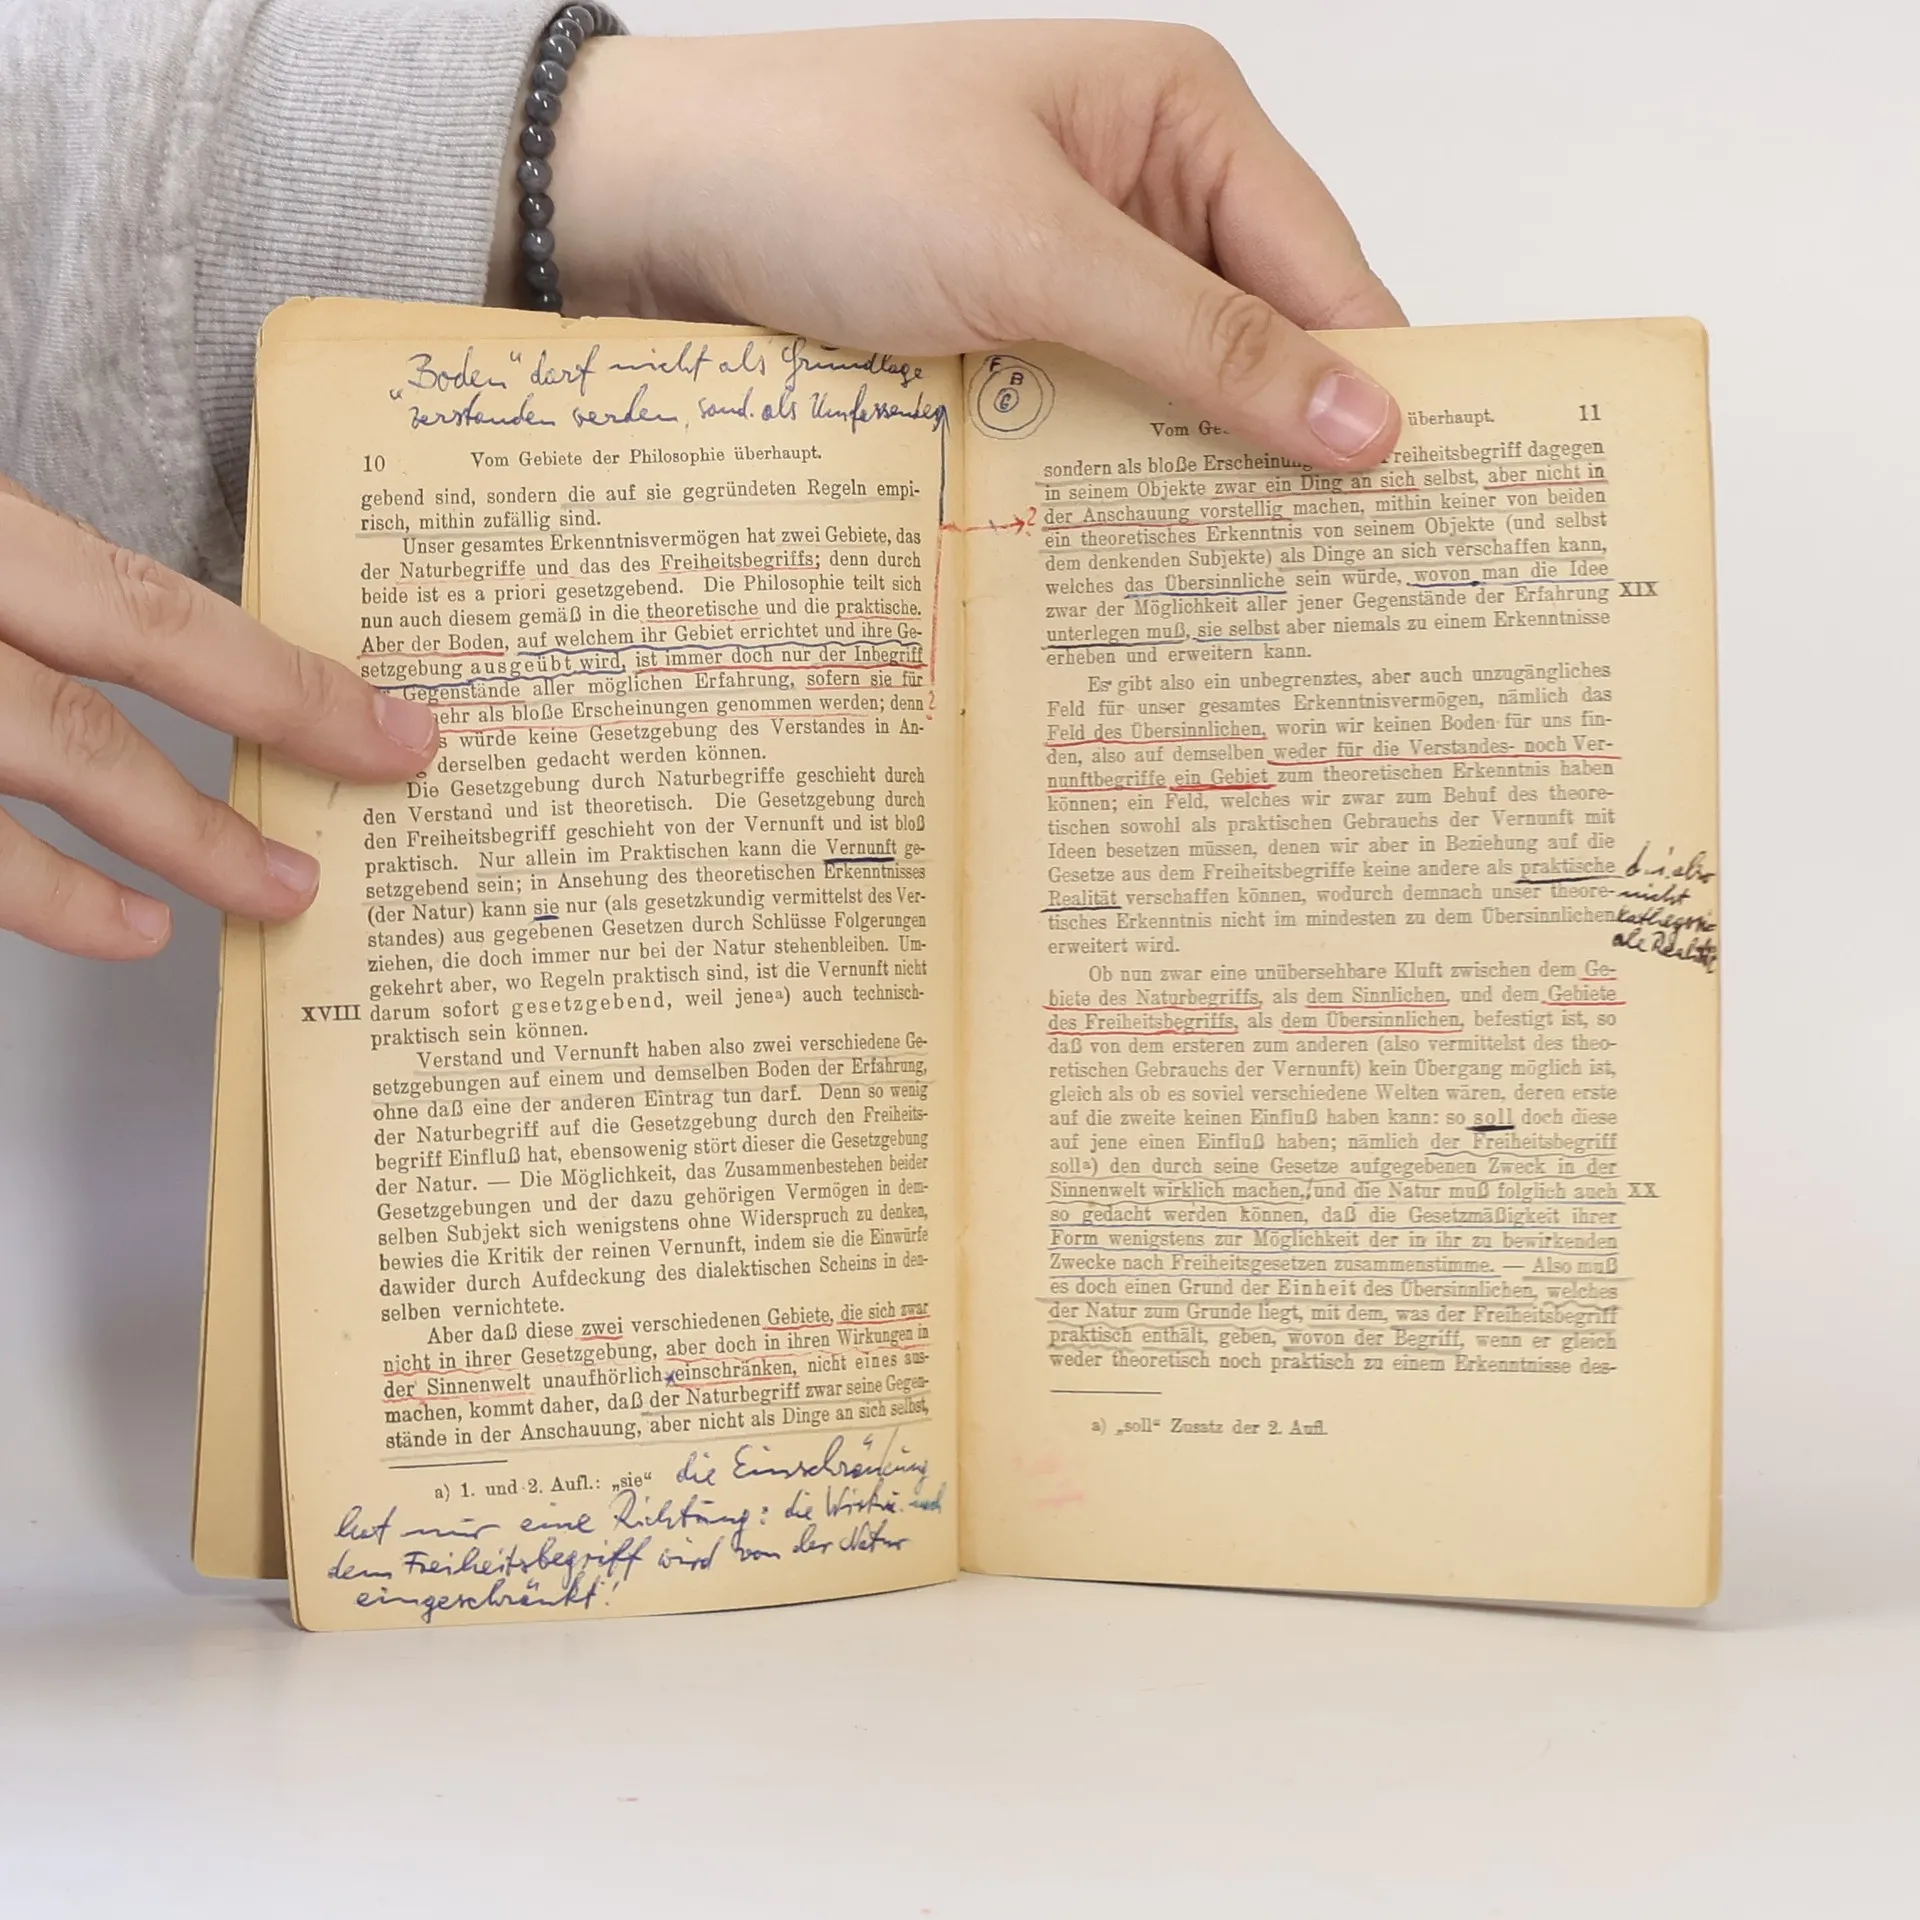 „Boden“ darf nicht als Grundlage
verstanden werden, sond. als Umfassendes
10 Vom Gebiete der Philosophie überhaupt.
gebend sind, sondern die auf sie gegründeten Regeln empi-
risch, mithin zufällig sind.
Unser gesamtes Erkenntnisvermögen hat zwei Gebiete, das
der Naturbegriffe und das des Freiheitsbegriffs; denn durch
beide ist es a priori gesetzgebend. Die Philosophie teilt sich
nun auch diesem gemäß in die theoretische und die praktische.
Aber der Boden, auf welchem ihr Gebiet errichtet und ihre Ge-
setzgebung ausgeübt wird, ist immer doch nur der Inbegriff
Gegenstände aller möglichen Erfahrung, sofern sie für
mehr als bloße Erscheinungen genommen werden; denn ?
s würde keine Gesetzgebung des Verstandes in An-
g derselben gedacht werden können.
Die Gesetzgebung durch Naturbegriffe geschieht durch
den Verstand und ist theoretisch. Die Gesetzgebung durch
den Freiheitsbegriff geschieht von der Vernunft und ist bloß
praktisch. Nur allein im Praktischen kann die Vernunft ge-
setzgebend sein; in Ansehung des theoretischen Erkenntnisses
(der Natur) kann sie nur (als gesetzkundig vermittelst des Ver-
standes) aus gegebenen Gesetzen durch Schlüsse Folgerungen
ziehen, die doch immer nur bei der Natur stehenbleiben. Um-
gekehrt aber, wo Regeln praktisch sind, ist die Vernunft nicht
XVIII darum sofort gesetzgebend, weil jene a) auch technisch-
praktisch sein können.
Verstand und Vernunft haben also zwei verschiedene Ge-
setzgebungen auf einem und demselben Boden der Erfahrung,
ohne daß eine der anderen Eintrag tun darf. Denn so wenig
der Naturbegriff auf die Gesetzgebung durch den Freiheits-
begriff Einfluß hat, ebensowenig stört dieser die Gesetzgebung
der Natur. — Die Möglichkeit, das Zusammenbestehen beider
Gesetzgebungen und der dazu gehörigen Vermögen in dem-
selben Subjekt sich wenigstens ohne Widerspruch zu denken,
bewies die Kritik der reinen Vernunft, indem sie die Einwürfe
dawider durch Aufdeckung des dialektischen Scheins in den-
selben vernichtete.
Aber daß diese zwei verschiedenen Gebiete, die sich zwar
nicht in ihrer Gesetzgebung, aber doch in ihren Wirkungen in
der Sinnenwelt unaufhörlich einschränken, nicht eines aus-
machen, kommt daher, daß der Naturbegriff zwar seine Gegen-
stände in der Anschauung, aber nicht als Dinge an sich selbst,
a) 1. und 2. Aufl.: „sie“
die Einschränkung
hat nur eine Richtung: die Wirkn. nach
dem Freiheitsbegriff wird von der Natur
eingeschränkt!
F
B
G
Vom Ge überhaupt. 11
sondern als bloße Erscheinung Freiheitsbegriff dagegen
in seinem Objekte zwar ein Ding an sich selbst, aber nicht in
? der Anschauung vorstellig machen, mithin keiner von beiden
ein theoretisches Erkenntnis von seinem Objekte (und selbst
dem denkenden Subjekte) als Dinge an sich verschaffen kann,
welches das Übersinnliche sein würde, wovon man die Idee
zwar der Möglichkeit aller jener Gegenstände der Erfahrung XIX
unterlegen muß, sie selbst aber niemals zu einem Erkenntnisse
erheben und erweitern kann.
Es gibt also ein unbegrenztes, aber auch unzugängliches
Feld für unser gesamtes Erkenntnisvermögen, nämlich das
Feld des Übersinnlichen, worin wir keinen Boden für uns fin-
den, also auf demselben weder für die Verstandes- noch Ver-
nunftbegriffe ein Gebiet zum theoretischen Erkenntnis haben
können; ein Feld, welches wir zwar zum Behuf des theore-
tischen sowohl als praktischen Gebrauchs der Vernunft mit
Ideen besetzen müssen, denen wir aber in Beziehung auf die
Gesetze aus dem Freiheitsbegriffe keine andere als praktische
Realität verschaffen können, wodurch demnach unser theore-
tisches Erkenntnis nicht im mindesten zu dem Übersinnlichen
erweitert wird.
d.i. also
nicht
kathegori-
ale Realität
Ob nun zwar eine unübersehbare Kluft zwischen dem Ge-
biete des Naturbegriffs, als dem Sinnlichen, und dem Gebiete
des Freiheitsbegriffs, als dem Übersinnlichen, befestigt ist, so
daß von dem ersteren zum anderen (also vermittelst des theo-
retischen Gebrauchs der Vernunft) kein Übergang möglich ist,
gleich als ob es soviel verschiedene Welten wären, deren erste
auf die zweite keinen Einfluß haben kann: so soll doch diese
auf jene einen Einfluß haben; nämlich der Freiheitsbegriff
soll a) den durch seine Gesetze aufgegebenen Zweck in der
Sinnenwelt wirklich machen, und die Natur muß folglich auch XX
so gedacht werden können, daß die Gesetzmäßigkeit ihrer
Form wenigstens zur Möglichkeit der in ihr zu bewirkenden
Zwecke nach Freiheitsgesetzen zusammenstimme. — Also muß
es doch einen Grund der Einheit des Übersinnlichen, welches
der Natur zum Grunde liegt, mit dem, was der Freiheitsbegriff
praktisch enthält, geben, wovon der Begriff, wenn er gleich
weder theoretisch noch praktisch zu einem Erkenntnisse des-
a) „soll“ Zusatz der 2. Aufl.